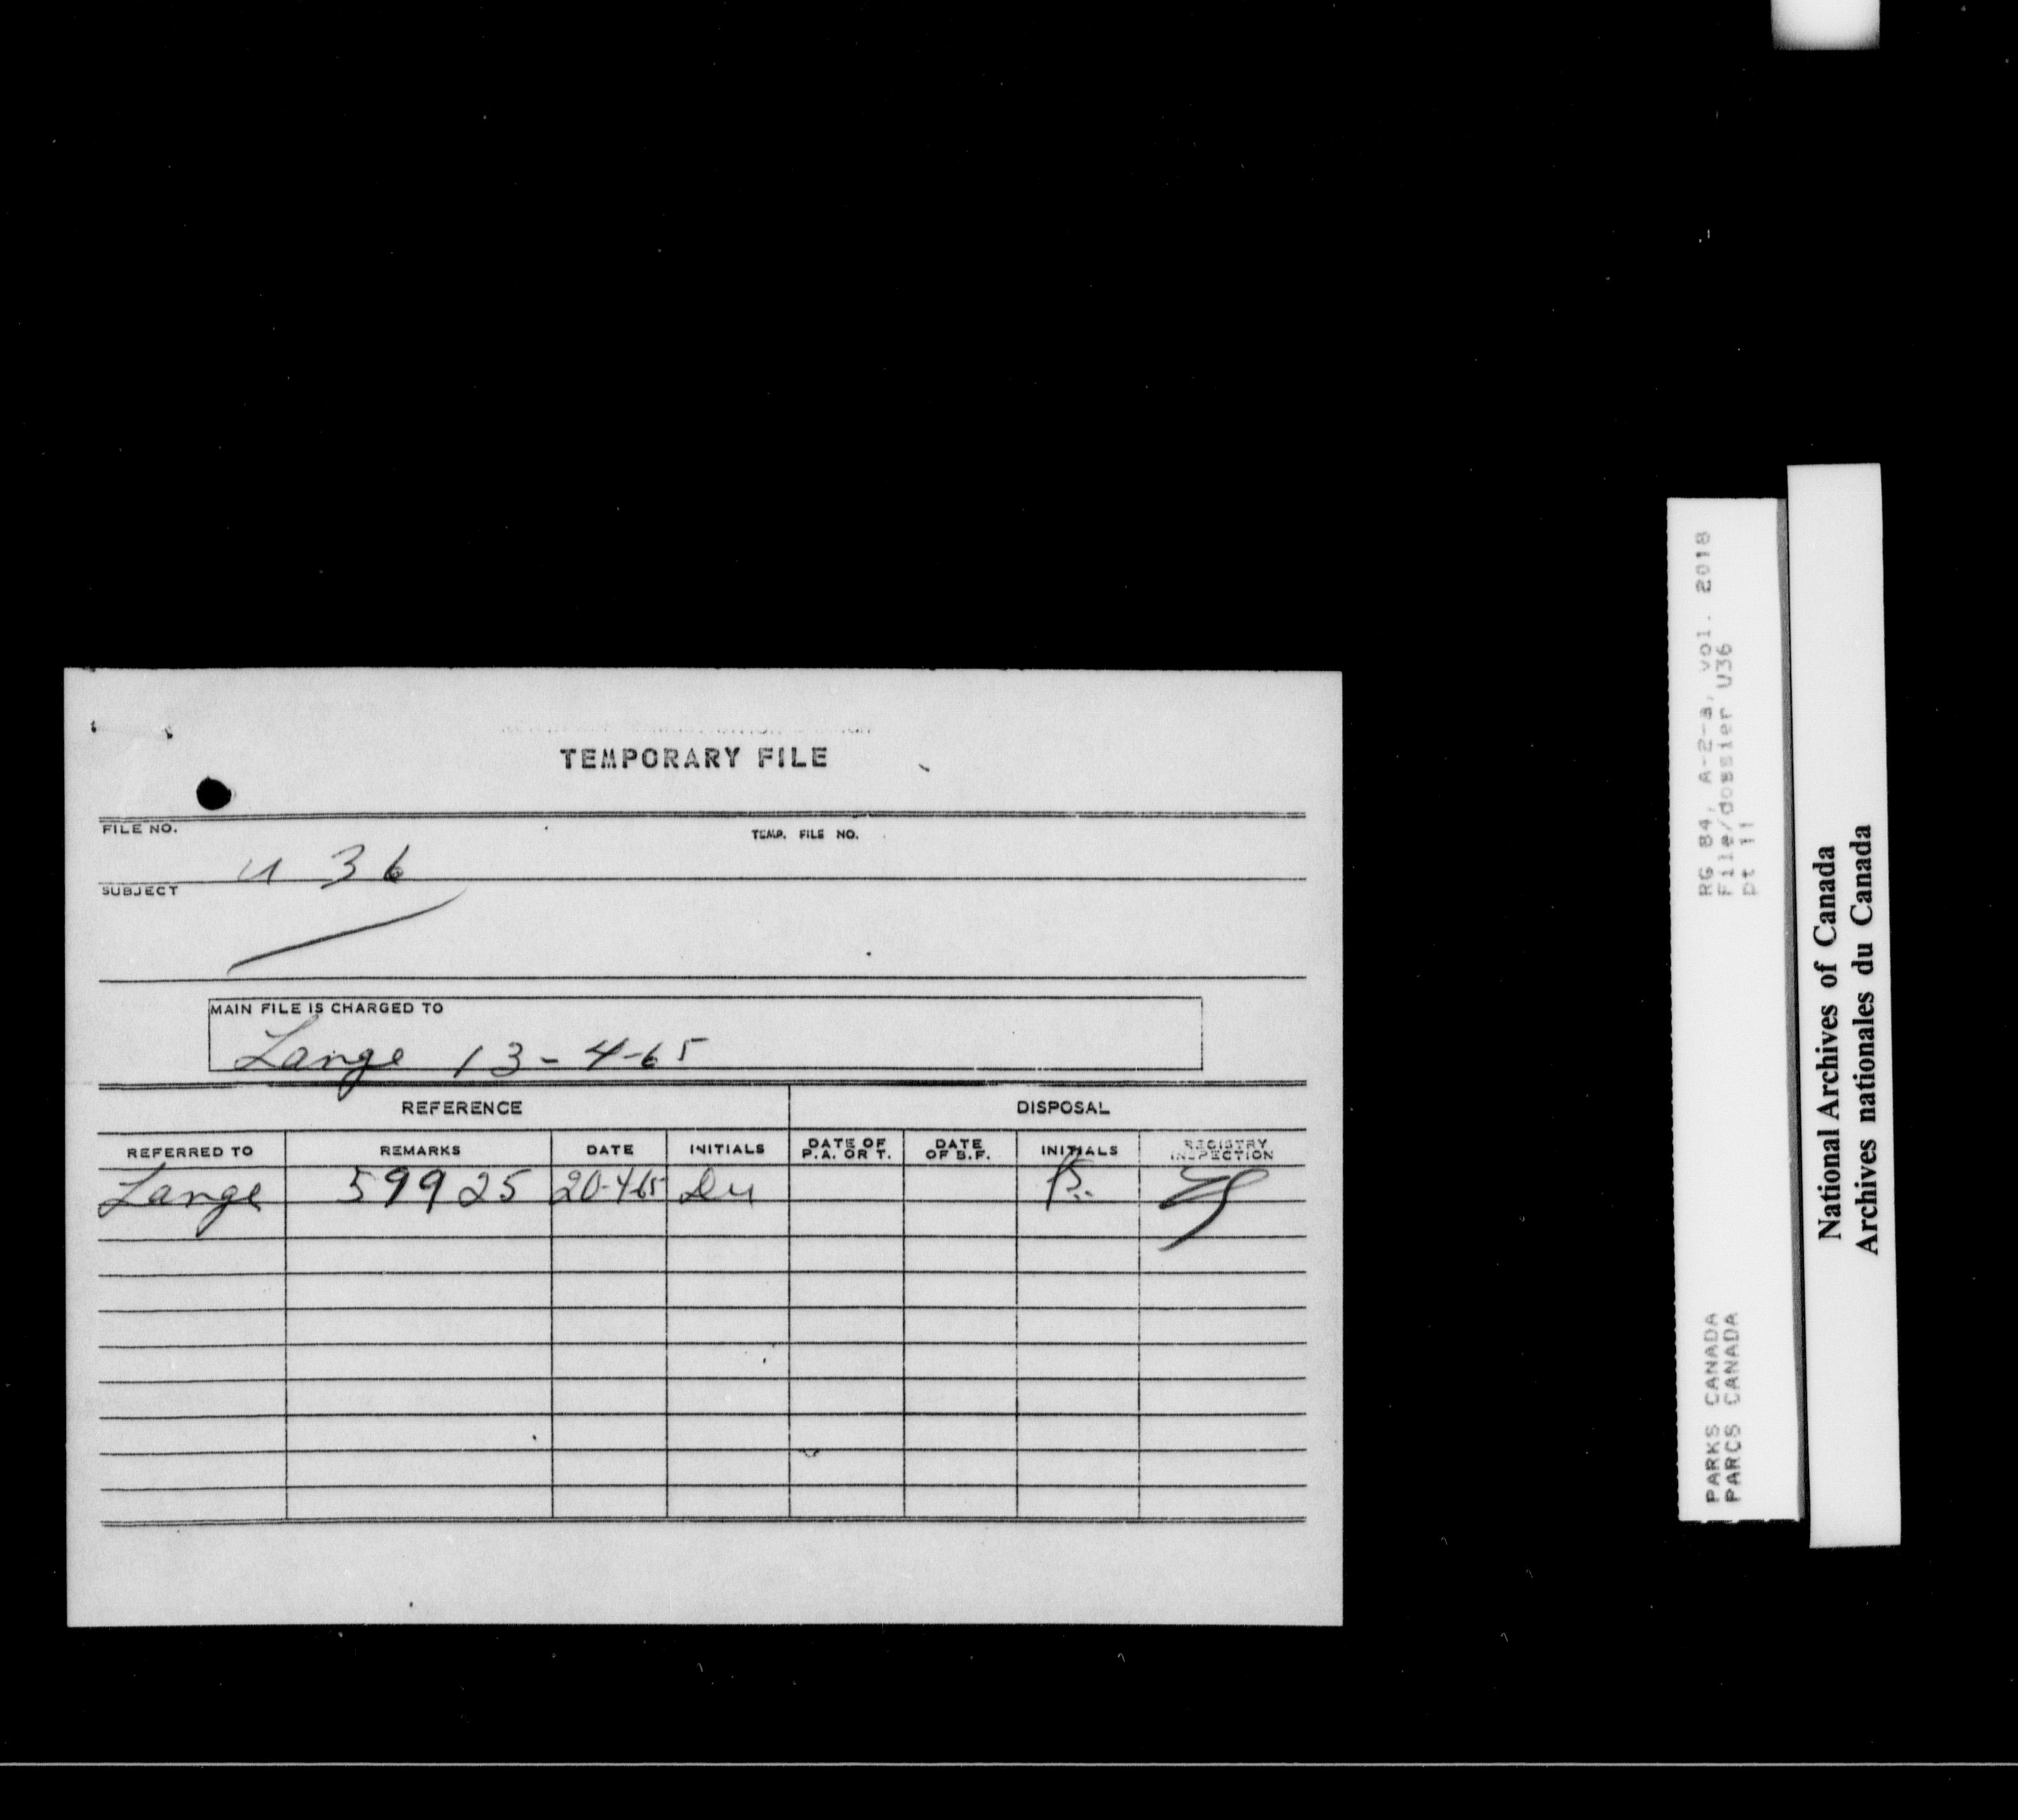 TEMPORARY FILE
FILE NO.
TEMP. FILE NO.
U 36
SUBJECT
MAIN FILE IS CHARGED TO
Lange 13-4-65
REFERENCE
DISPOSAL
REFERRED TO
REMARKS
DATE
INITIALS
DATE OF
P.A. OR T.
DATE
OF B.F.
INITIALS
REGISTRY
INSPECTION
Lange 59925 20-4-65
RG 84, A-2-a, vol. 2018
File/dossier U36
pt 11
PARKS CANADA
PARCS CANADA
National Archives of Canada
Archives nationales du Canada